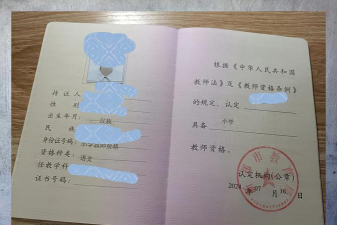 持证人
性别
出生年月
汉族
民族
身份证号码
小学教师资格
资格种类
语文
任教学科
证书号码
根据《中华人民共和国
教师法》及《教师资格条例》
的规定，认定
具备 小学
教师资格。
认定机构(公章)
2024年07月16日